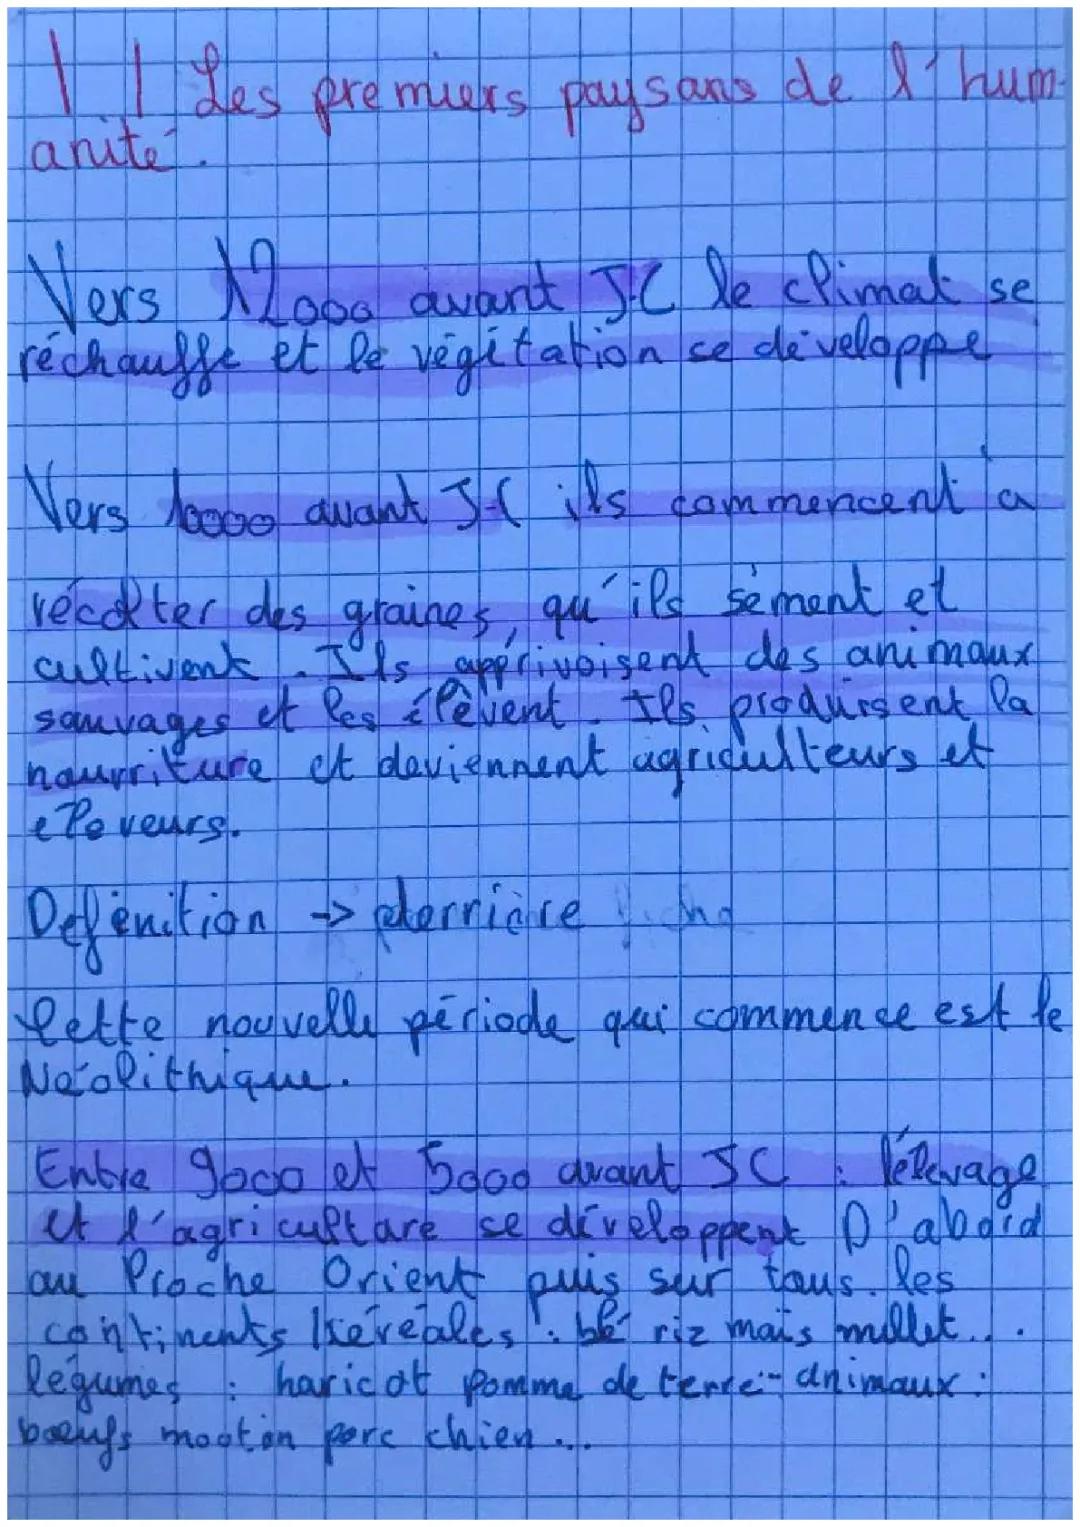 I | Les premiers paysans de l'hum-
anité.
Vers 12000 avant J-C le climat se
réchauffe et le végitation se développe
Vers 10000 avant J-C ils commencent à
récolter des graines, qu'ils sèment et
cultivent. Ils apprivoisent des animaux
sauvages et les élèvent. Ils produisent la
nourriture et deviennent agriculteurs et
eleveurs.
Defenition → derrière
Cette nouvelle période qui commence est le
Néolithique.
Entre 9000 et 5000 avant JC : l'élevage
et l'agriculture se développent D'abord
au Proche Orient puis sur tous les
continents céréales : blé riz maïs millet...
légumes : haricot pomme de terre - animaux :
boeufs mouton porc chien...